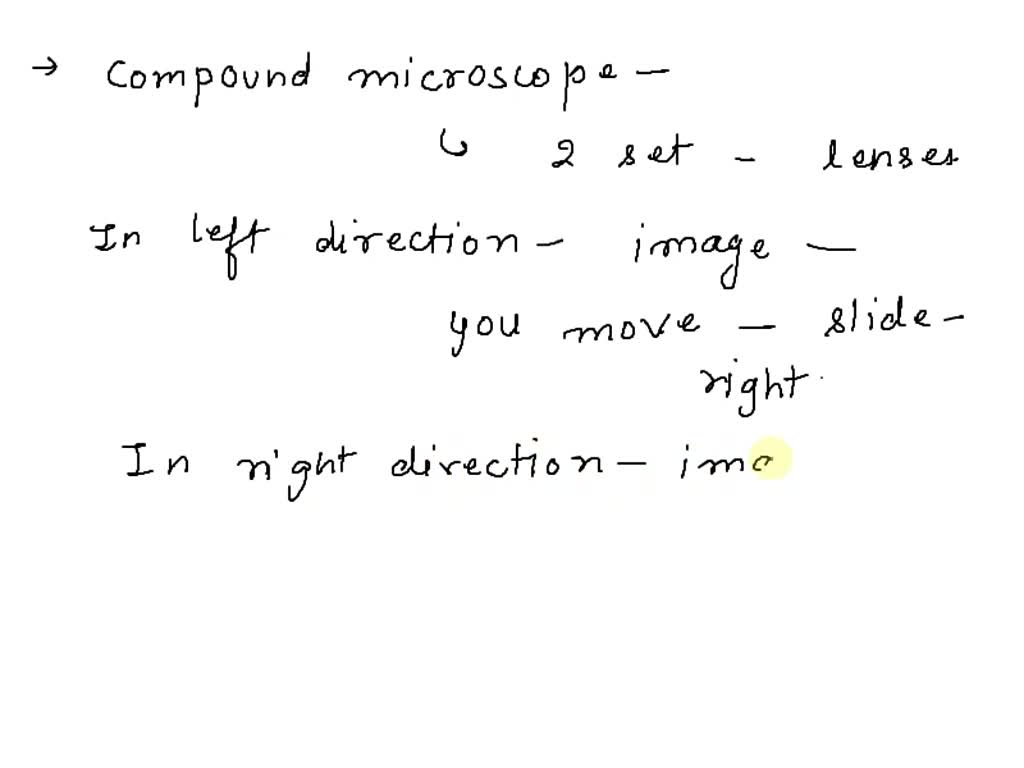 → Compound microscope -
↳ 2 set - lenses
In left direction - image -
you move - slide -
right.
In right direction - ima